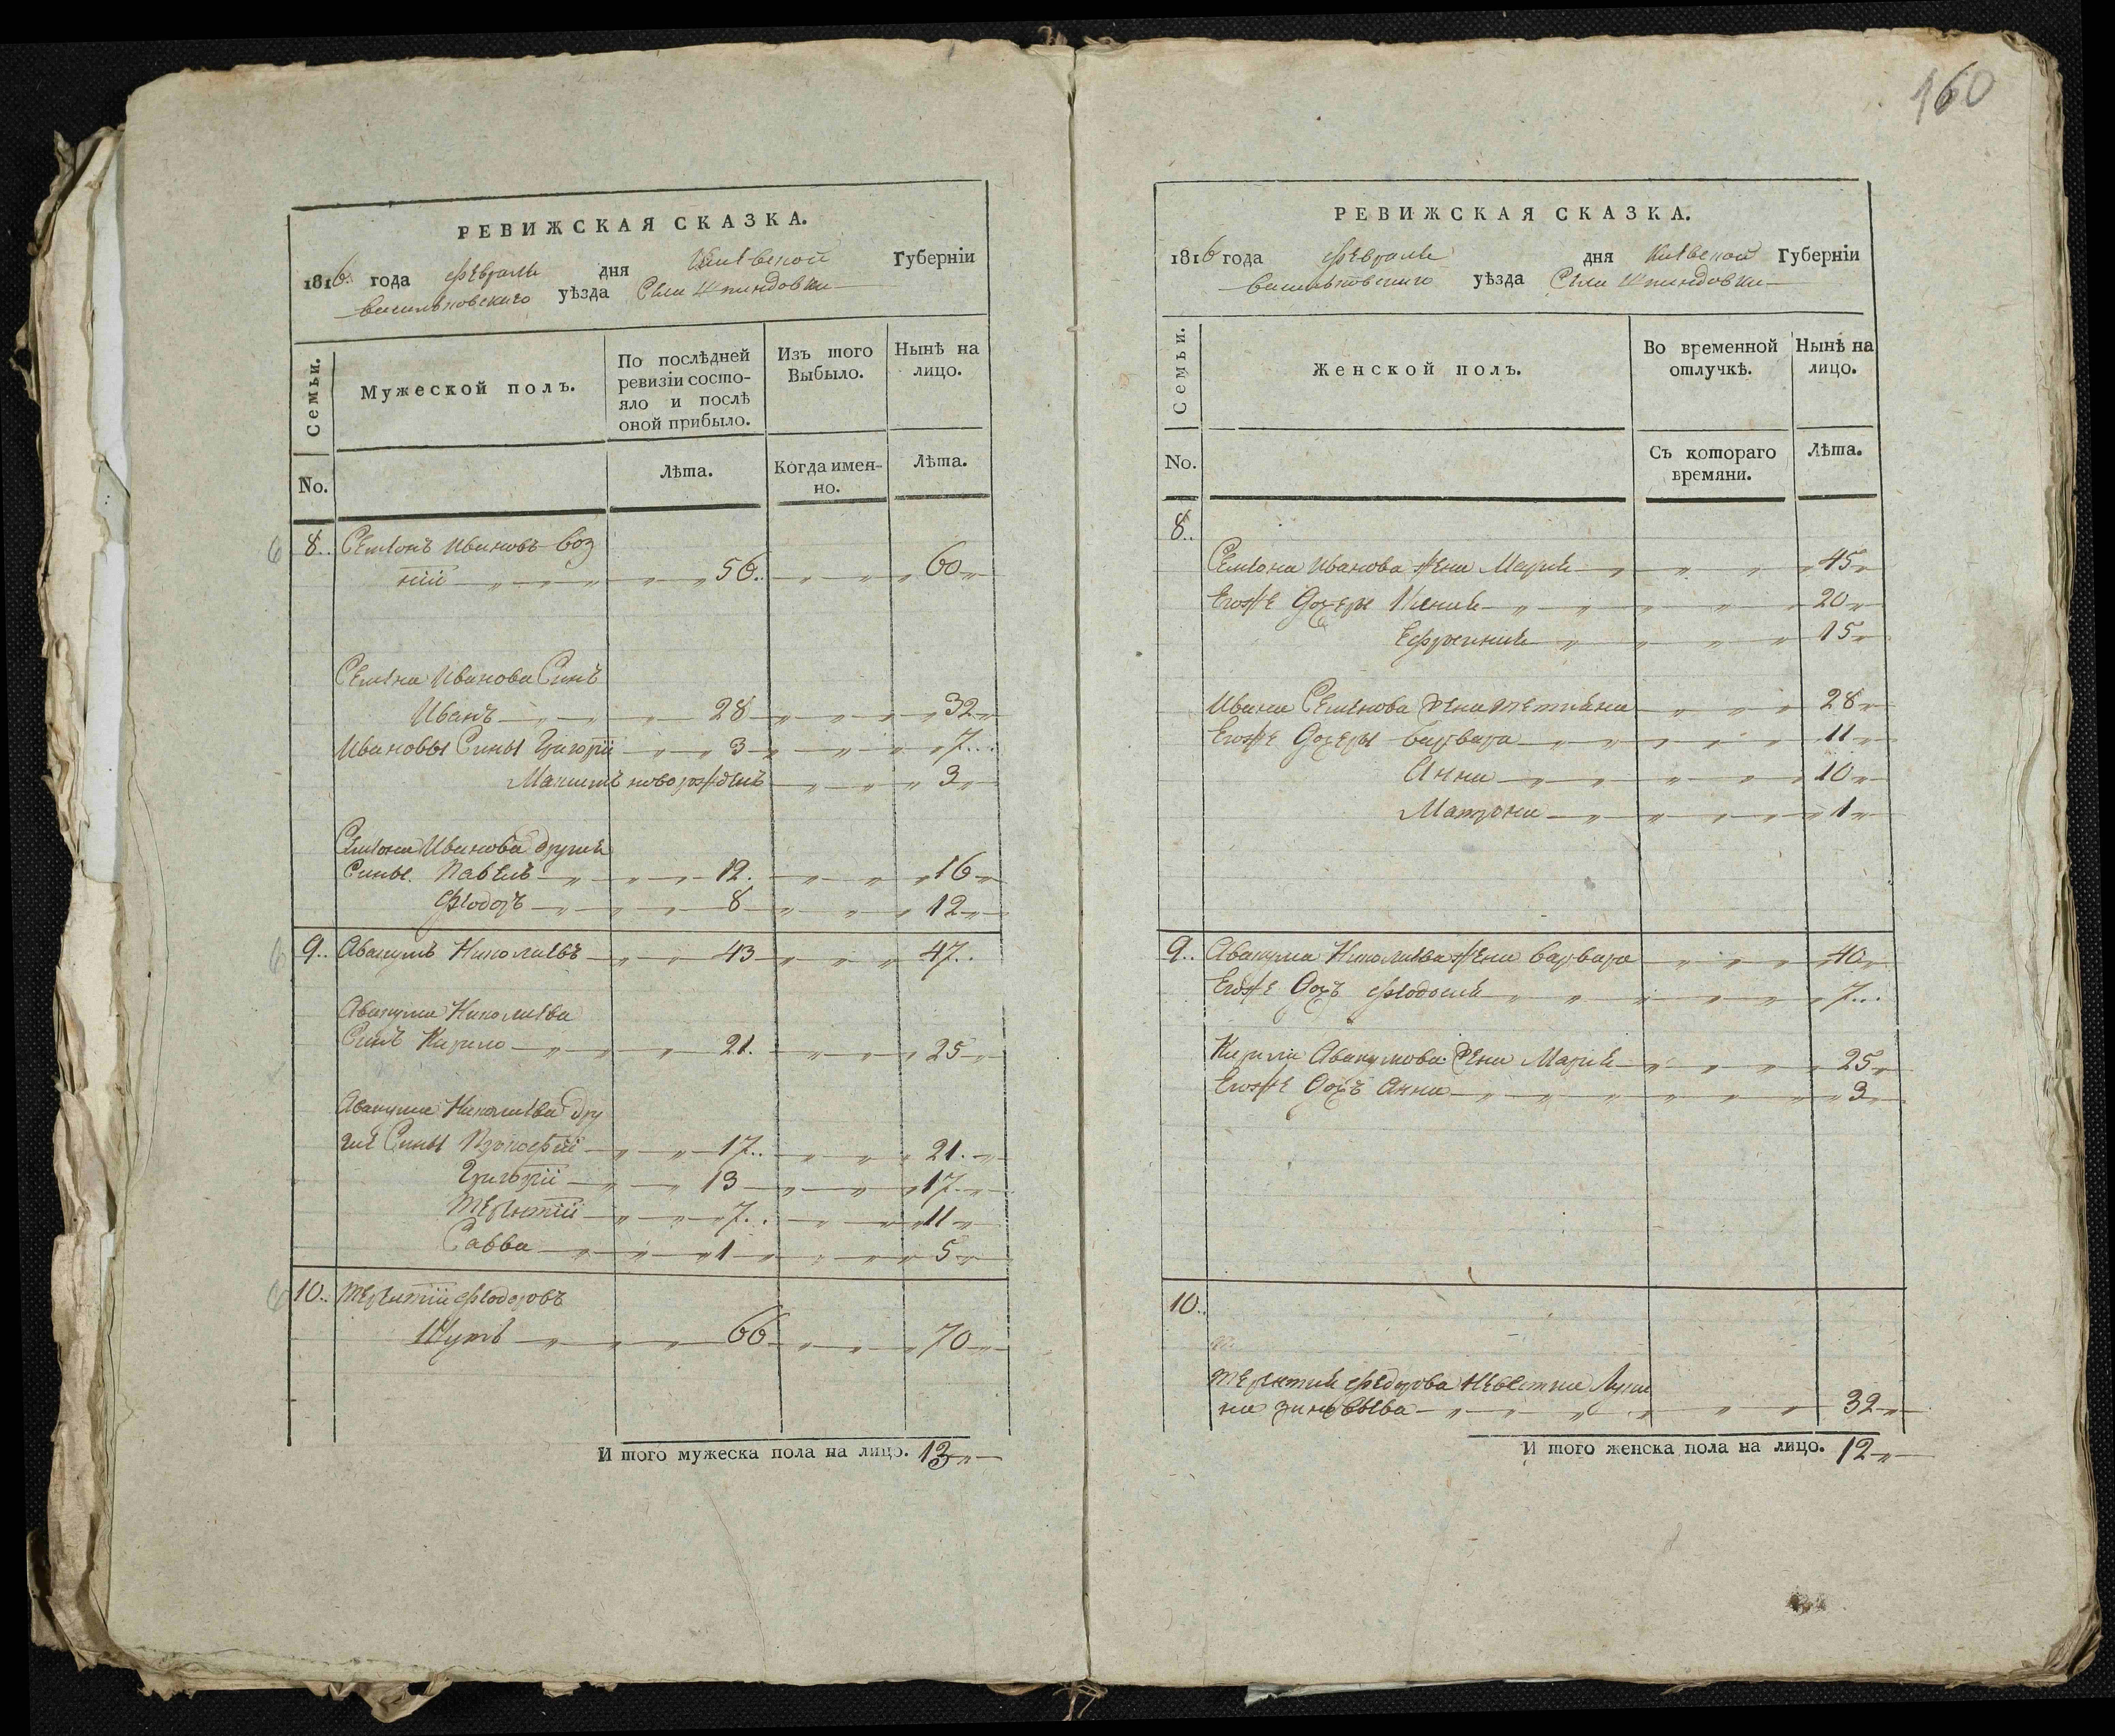 160
РЕВИЖСКАЯ СКАЗКА.
1816 года февраля дня Киевской Губерніи
васильковскаго уѣзда Села Шпиндовки
Семьи.
Мужеской полъ.
По послѣдней ревизіи состо-
яло и послѣ
оной прибыло.
Изъ того Выбыло.
Нынѣ на лицо.
No.
Лѣта.
Когда имен-
но.
Лѣта.
8.. Семіонъ Ивановъ воз
ній 56.. 60
Семіона Иванова Синъ
Иванъ 28 32
Ивановы Сины Григорій 3 7...
Максимъ новорожденъ 3
Семіона Иванова другие
Сины. Павелъ 12. 16
Фіодоръ 8 12
9.. Авакумъ Николаіевъ 43 47..
Авакума Николаіева
Синъ Кирило 21. 25
Авакума Николаіева дру
гие Сины Прокофій 17.. 21.
Григорій 13 17.
Терентій 7.. 11
Савва 1 5
10.. Терентій Фіодоровъ
66 70
И того мужеска пола на лицо. 13
РЕВИЖСКАЯ СКАЗКА.
1816 года февраля дня Киевской Губерніи
васильковского уѣзда Села Шпиндовки
Семьи.
Женской полъ.
Во временной отлучкѣ.
Нынѣ на лицо.
No.
Съ котораго времяни.
Лѣта.
8..
Семіона Иванова жена Марія 45
Егоже Дочеры Ксенія 20
Ефросинія 15
Ивана Семенова жена Тетияна 28
Егоже Дочеры варвара 11
Анна 10
Матрона 1
9.. Авакума Николаіева жена варвара 40
Егоже Дочъ Фіодосия 7...
Кирила Авакумова жена Марія 25
Егоже Дочъ Анна 3
10..
Терентия Федорова Невестка Луки
на зиновыева 32
И того женска пола на лицо. 12